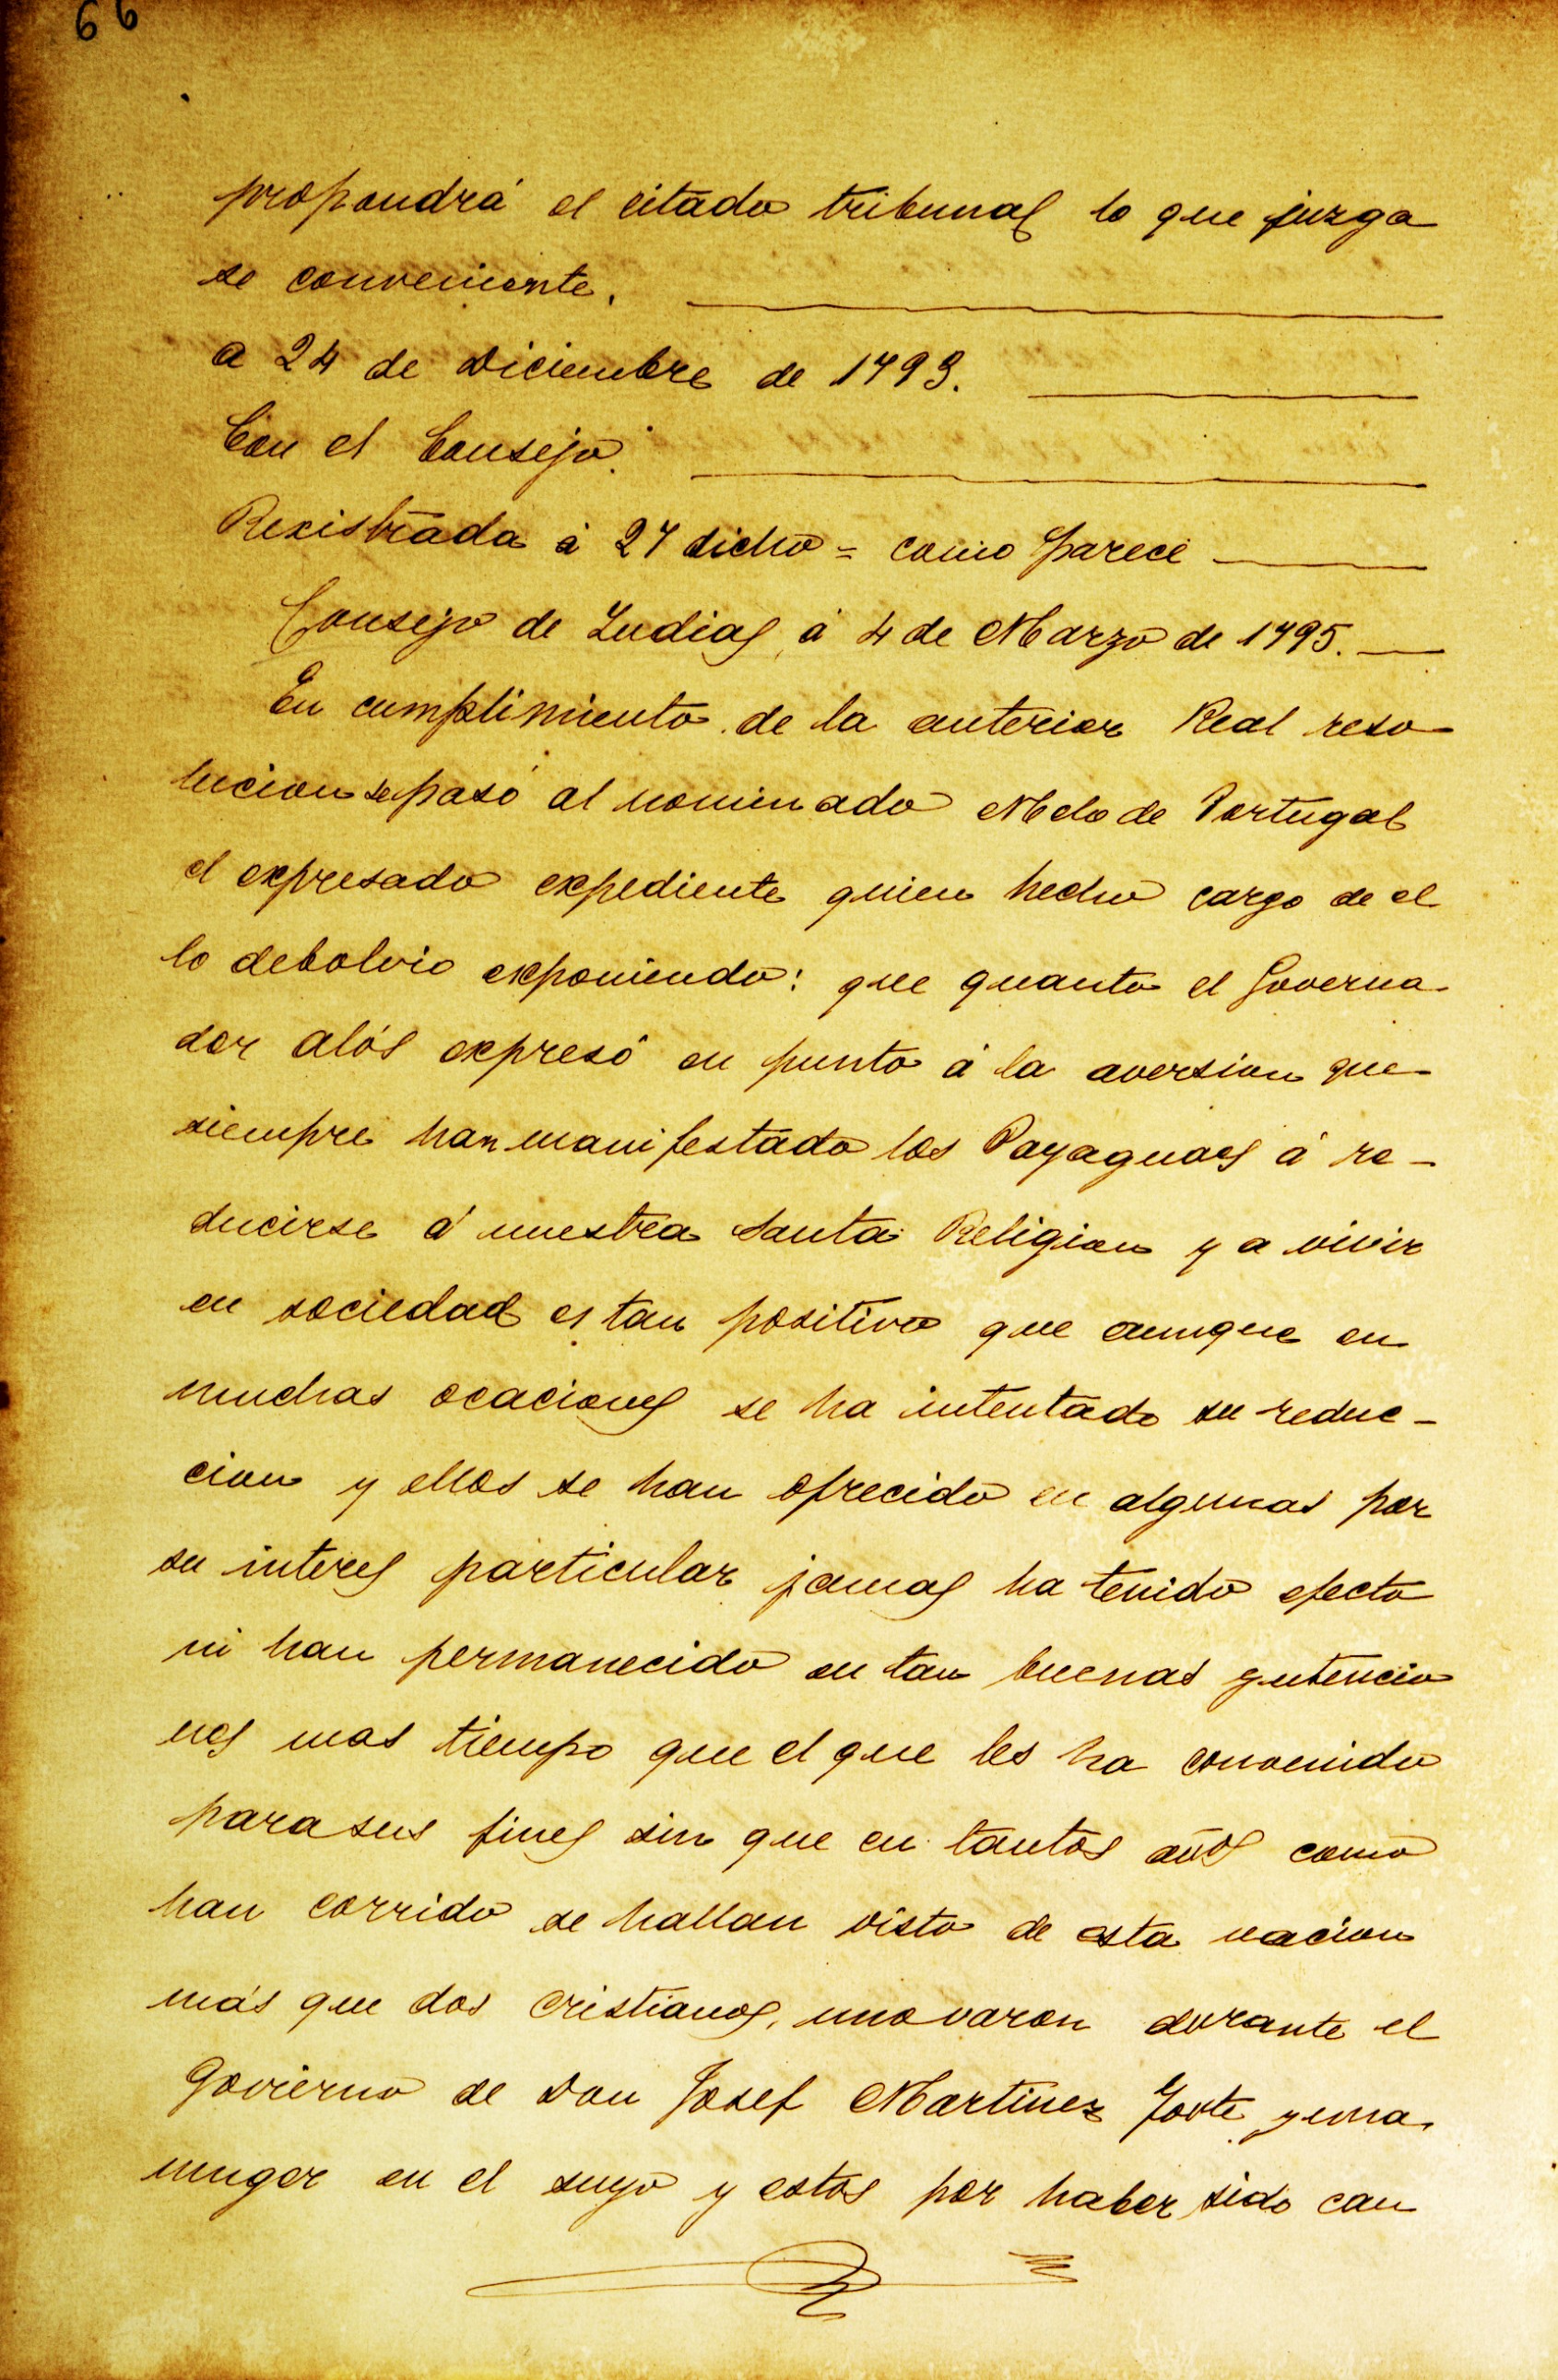 66
propondrá el citado tribunal lo que juzga
se conveniente.
a 24 de Diciembre de 1793.
Con el Consejo.
Rexistrada á 27 dicho = como parece
Consejo de Indias, á 4 de Marzo de 1795.
En cumplimiento de la anterior Real reso
lucion se pasó al nominado Melo de Portugal
el expresado expediente quien hecho cargo de el
lo debolvio exponiendo: que quanto el Governa-
dor Alós expresó en punto á la aversion que
siempre han manifestado los Payaguas á re-
ducirse á nuestra Santa Religion y a vivir
en sociedad es tan positivo que aunque en
muchas ocaciones se ha intentado su reduc-
cion y ellos se han ofrecido en algunas por
su interes particular jamas ha tenido efecto
ni han permanecido en tan buenas yntencio
nes mas tiempo que el que les ha convenido
para sus fines sin que en tantos años como
han corrido se hallan visto de esta nacion
más que dos cristianos, uno varon durante el
Govierno de Don Josef Martinez Fonte y una
muger en el suyo y estos por haber sido cau